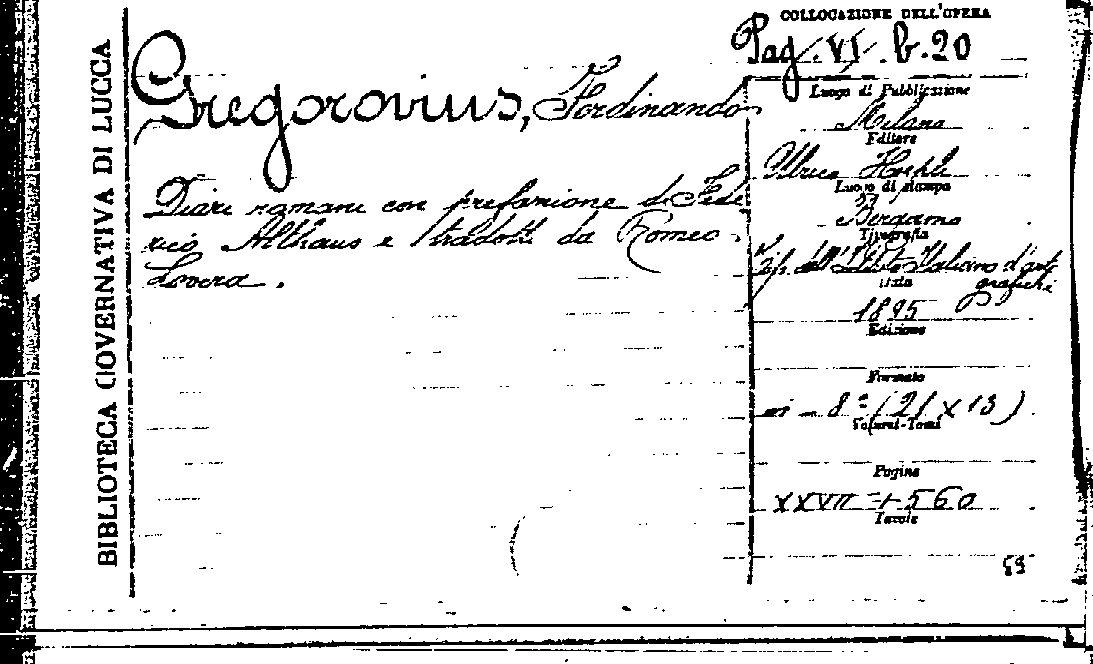 BIBLIOTECA GOVERNATIVA DI LUCCA
Gregorovius, Ferdinando
Diari romani con prefazione di Fede
rico Althaus e tradotti da Romeo
Lovera.
COLLOCAZIONE DELL'OPERA
Pag. VI. b. 20
Luogo di Pubblicazione
Milano
Editore
Ulrico Hoepli
Luogo di stampa
Bergamo
Tipografia
Tip. dell'Istituto Italiano d'arti
grafiche
Data
1895
Edizione
Formato
in - 8º (21 x 13)
Volumi-Tomi
Pagine
XXVII + 560
Tavole